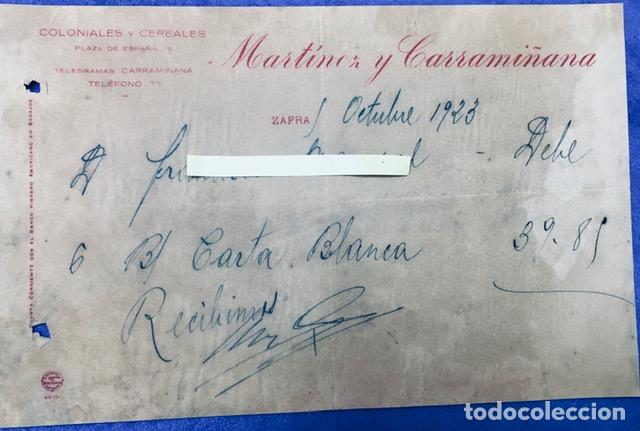 COLONIALES Y CEREALES
PLAZA DE ESPAÑA, 15
TELEGRAMAS CARRAMIÑANA
TELÉFONO 77
Martínez y Carramiñana
ZAFRA 1 Octubre 1923
D Debe
6 B/ Carta Blanca 39.85
Recibimos
CUENTA CORRIENTE CON EL BANCO HISPANO AMERICANO EN BADAJOZ
todocoleccion.net